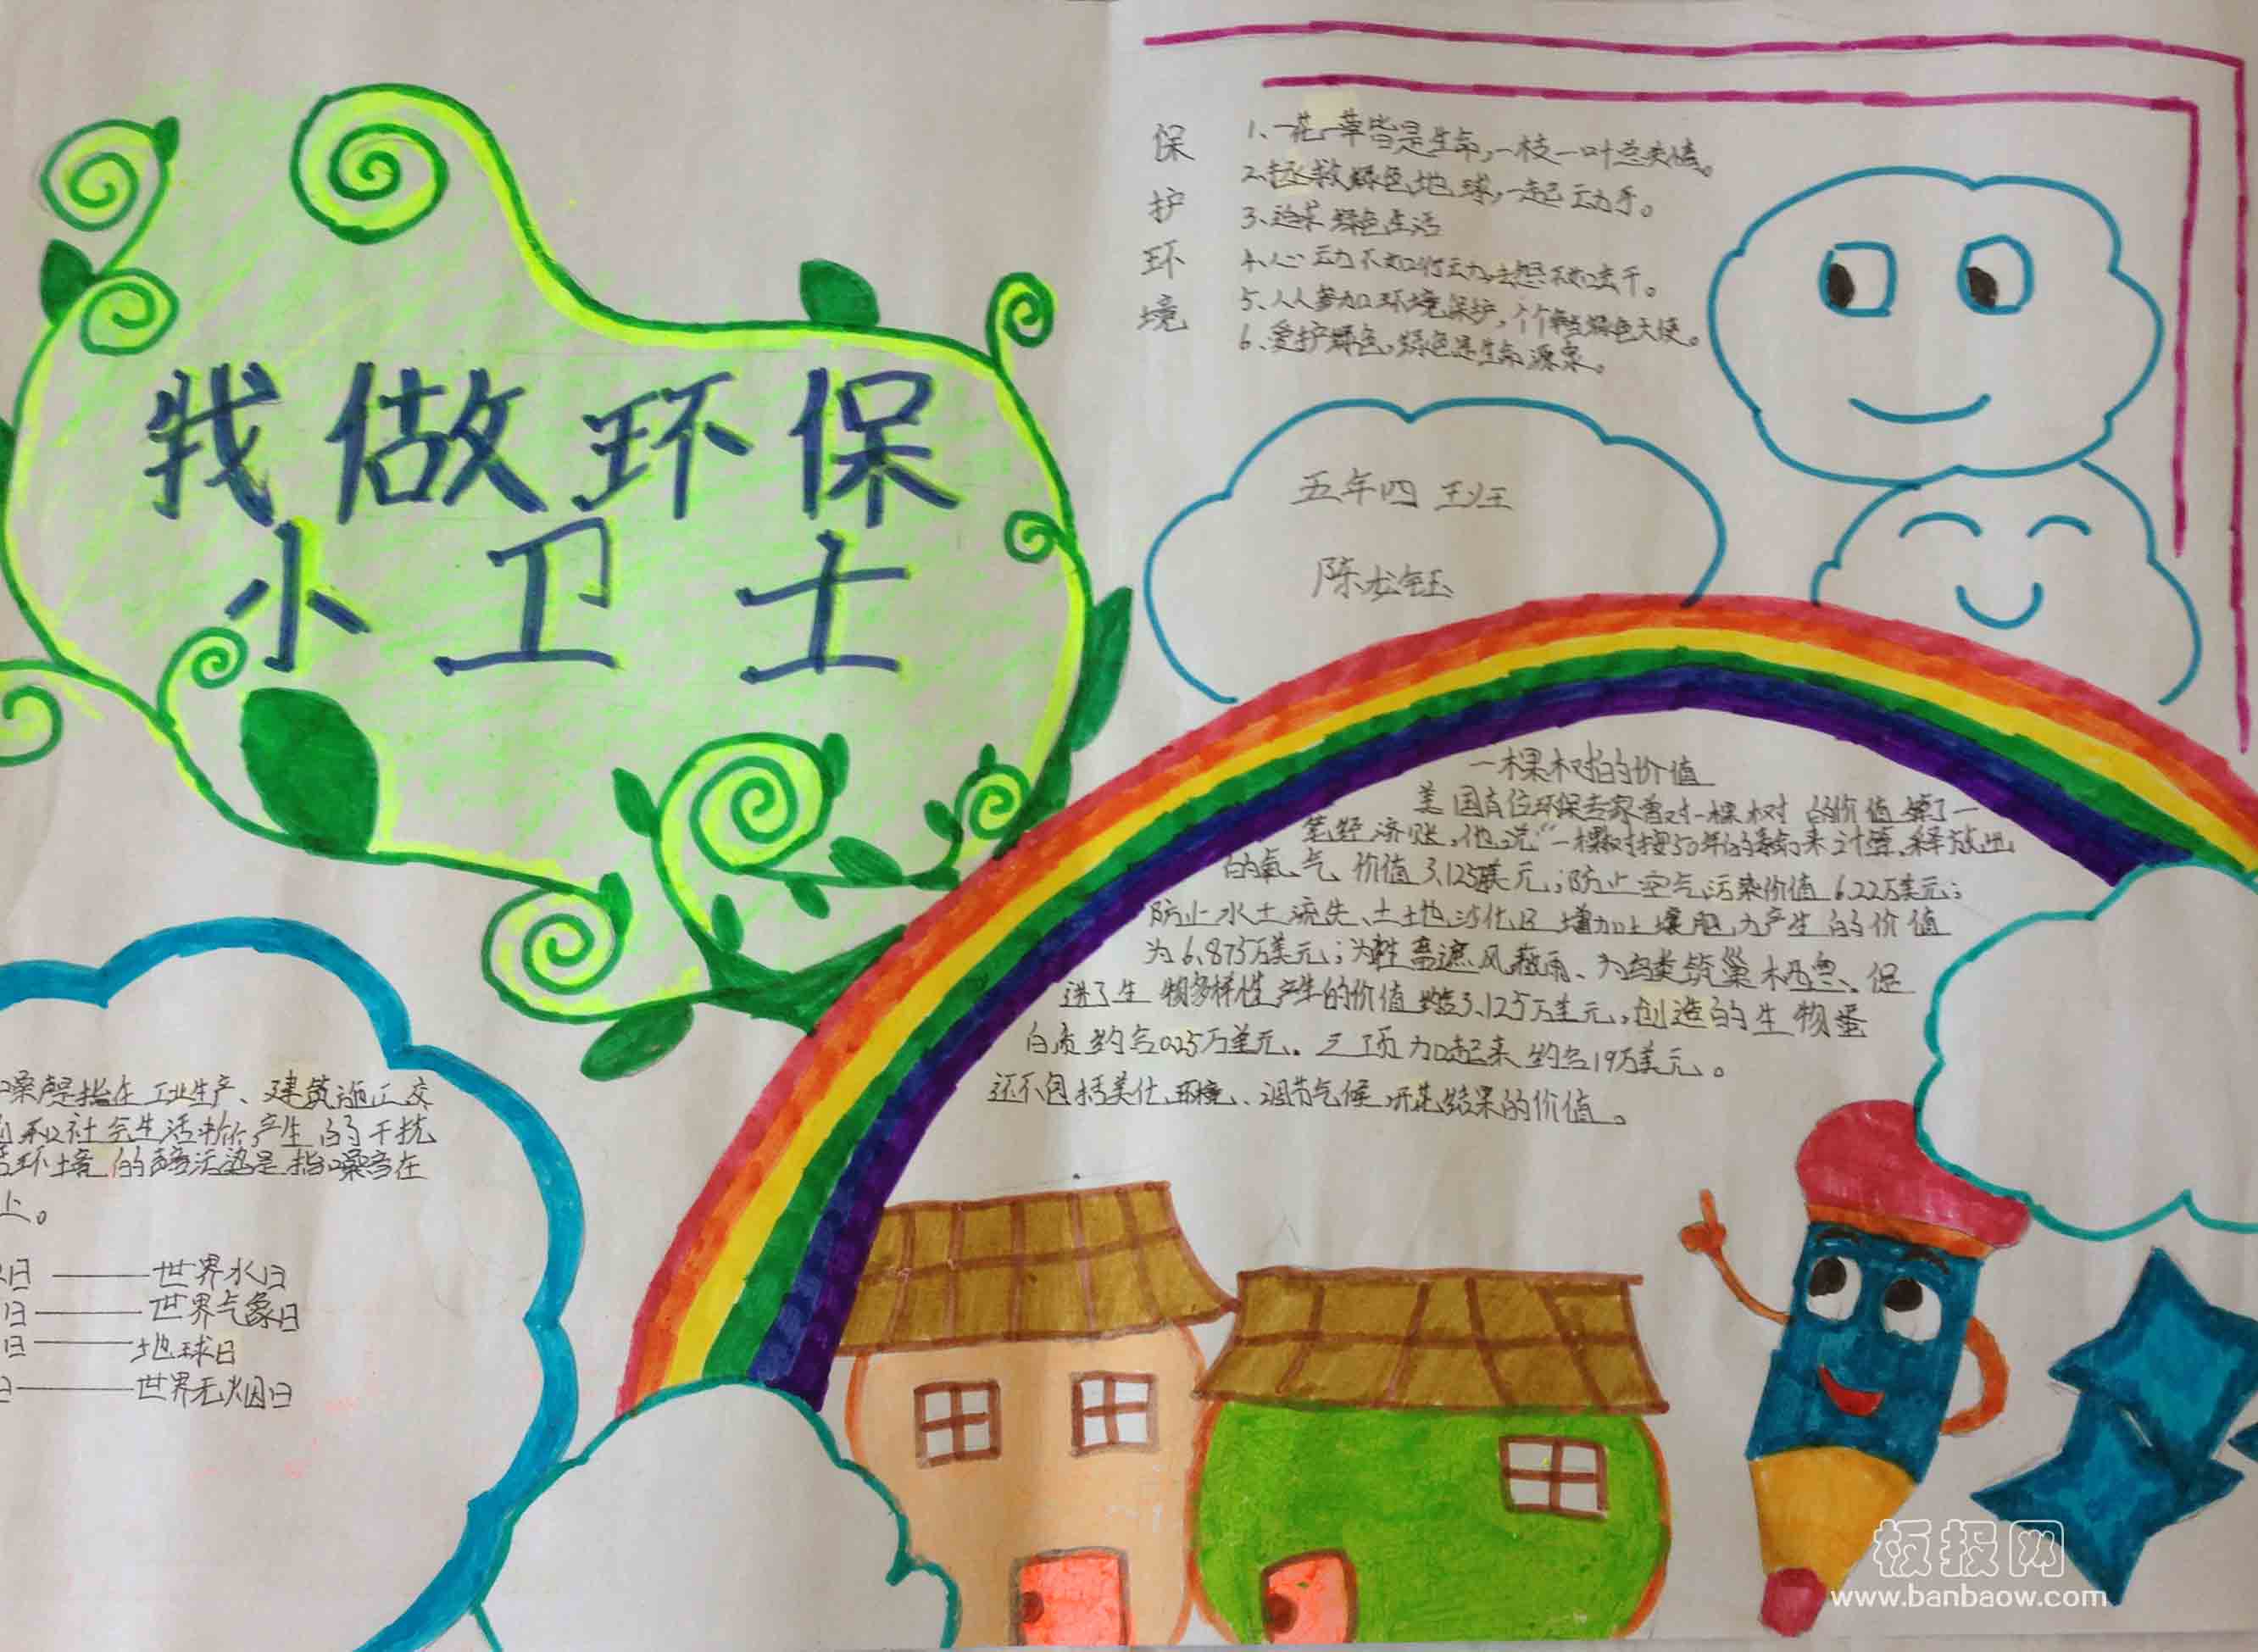 我做环保
小卫士
保护环境
1、一花一草皆是生命,一枝一叶总关情。
2、拯救绿色地球,一起动手。
3、追求绿色生活
4、心动不如行动,去想不如去干。
5、人人参加环境保护,个个争当绿色天使。
6、爱护绿色,绿色是生命源泉。
五年四班
陈龙钰
一棵树的价值
美国有位环保专家曾对一棵树的价值算了一
笔经济账,他说“一棵树按50年的寿命来计算,释放出
的氧气价值3.125万美元;防止空气污染价值6.22万美元;
防止水土流失、土地沙化及增加土壤肥力产生的价值
为6.875万美元;为牲畜遮风蔽雨、为鸟类筑巢栖息、促
进了生物多样性产生的价值3.125万美元,创造的生物蛋
白质约合0.25万美元。三项加起来约合19万美元。
还不包括美化环境、调节气候,开花结果的价值。
噪声是指在工业生产、建筑施工、交
和社会生活中所产生的干扰
环境的声音污染是指噪音在
上。
日——世界水日
日——世界气象日
日——地球日
日——世界无烟日
板报网
www.banbaow.com